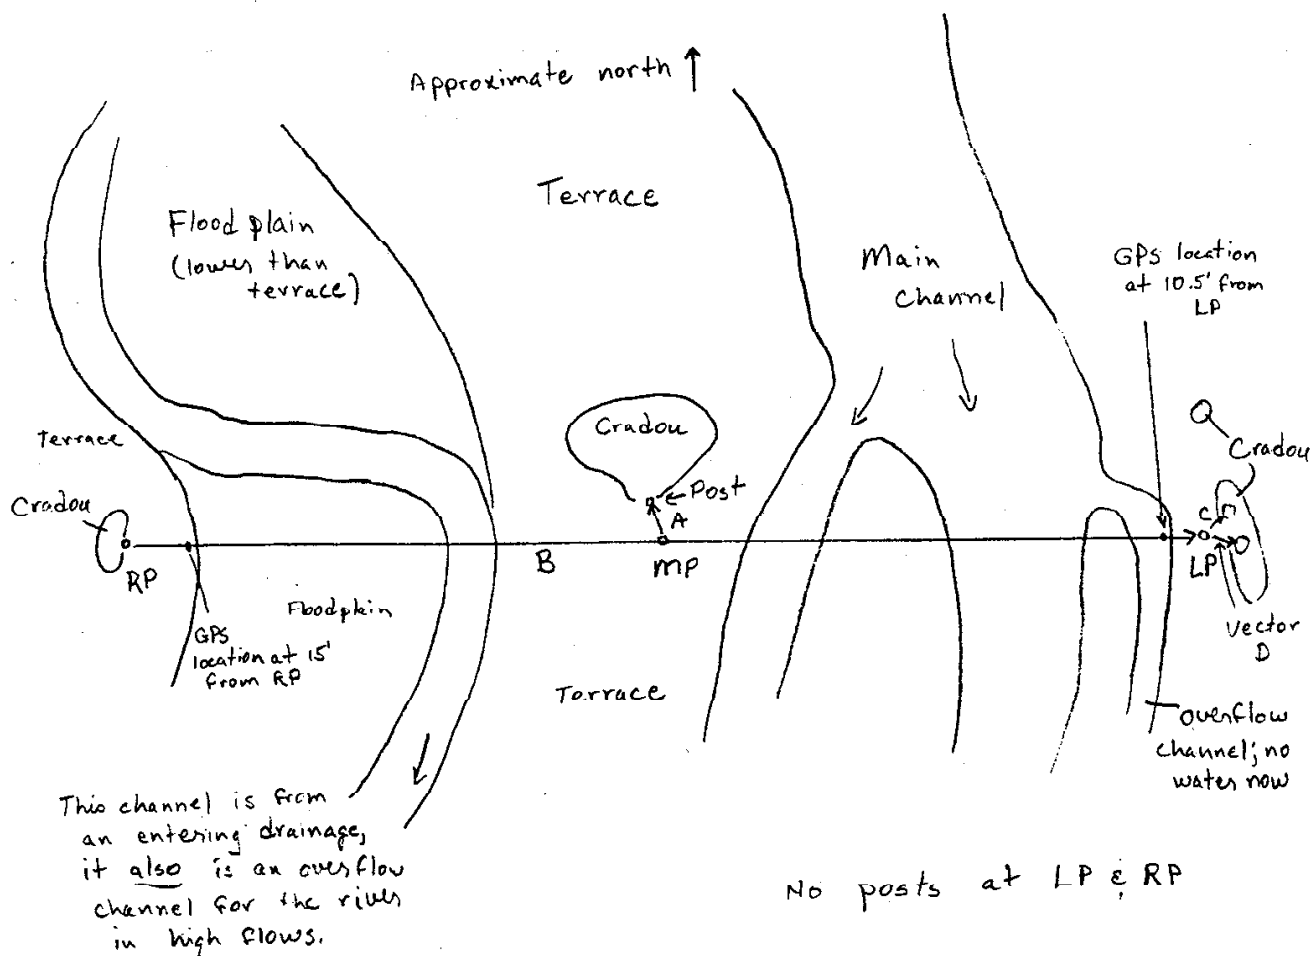 Approximate north
Terrace
Flood plain
(lower than
terrace)
Main
Channel
GPS location
at 10.5' from
LP
Terrace
Cradou
Cradou
Cradou
Post
A
C
RP
B
MP
LP
Vector
D
GPS
location at 15'
from RP
Floodplain
Terrace
overflow
channel; no
water now
This channel is from
an entering drainage,
it also is an overflow
channel for the river
in high flows.
No posts at LP & RP